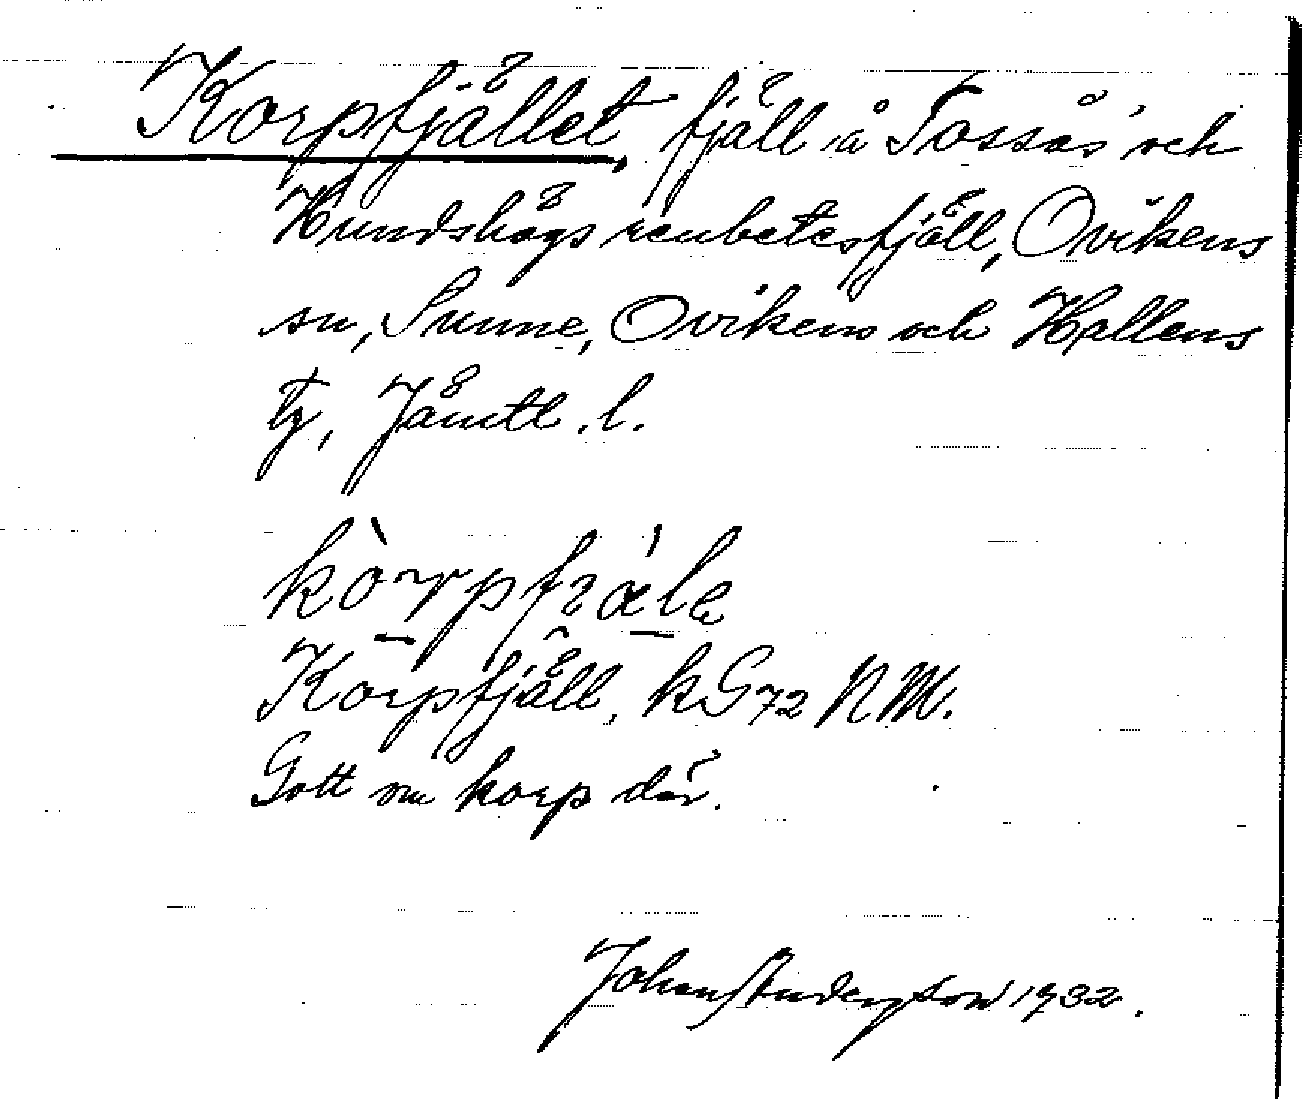 Korpfjället, fjäll å Tossås och
Hundshögs renbetesfjäll, Ovikens
sn, Sunne, Ovikens och Hallens
tg, Jämtl. l.
kòrpfjá̱la
Korpfjäll, k G72 NM.
Gott om korp där.
Johan Anderson 1932.